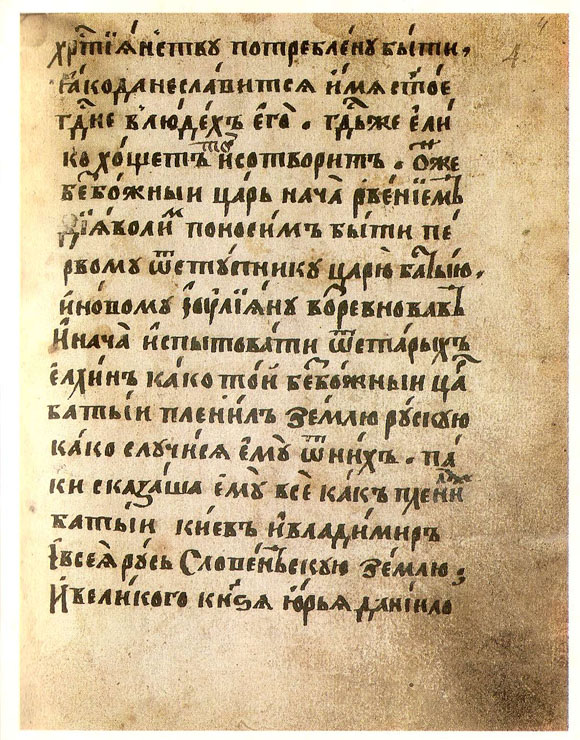 хрⷭ҇тїѧ́нству потреблену̀ бы́ти,
ꙗ́кода неславится и҆́мѧ ст҃о́е
гдⷭ҇не влю́дехъ є҆го̀. гдⷭ҇ь же є҆ли́
ко хо́щетъ то̀ исотвори́тъ. ѻ҆́же
безбо́жныи ца́рь нача̀ рве́нїемъ
дїѧ́волимъ поноси́мъ бы́ти пе́
рвому ѿсту́пнику царю̀ баты́ю,
и҆но́вому і҆оулїѧ́ну воревнова́въ
И҆нача̀ и҆спытова́ти ѿста́рыхъ
є҆́лхинъ ка́ко то́й безбо́жныи ца́рь
баты́и плени́лъ зе́млю рꙋ́скую
ка́ко слꙋчи́ся є҆мꙋ̀ ѿни́хъ. па́
ки сказа́ша є҆мꙋ̀ всѐ ка́къ плени́лъ
баты́и ки́евъ и҆влади́миръ
И҆всеѧ̀ рꙋ́сь Слове́ньскую зе́млю;
И҆вели́кого кнѕ҃я ю҆́рья дани́ло